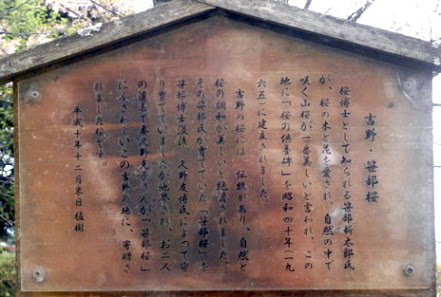 吉野・笹部桜
桜博士として知られる笹部新太郎氏
が、桜の木と花を愛され、自然の中で
咲く山桜が一番美しいと言われ、この
地に「桜の
碑」を昭和四十年(一九
六五)に建立されました。
吉野の桜には、伝統があり、自然と
桜の調和が美しいと絶賛されました。
その笹部氏が育てていた「笹部桜」を
笹部博士没後、久野友博氏によって皆
り育てていましたが他界され、お二人
の遺志で奉
人が「笹部桜」
にふさわしいこの吉野の地に、寄贈さ
れました桜です。
平成十年十二月末日植樹